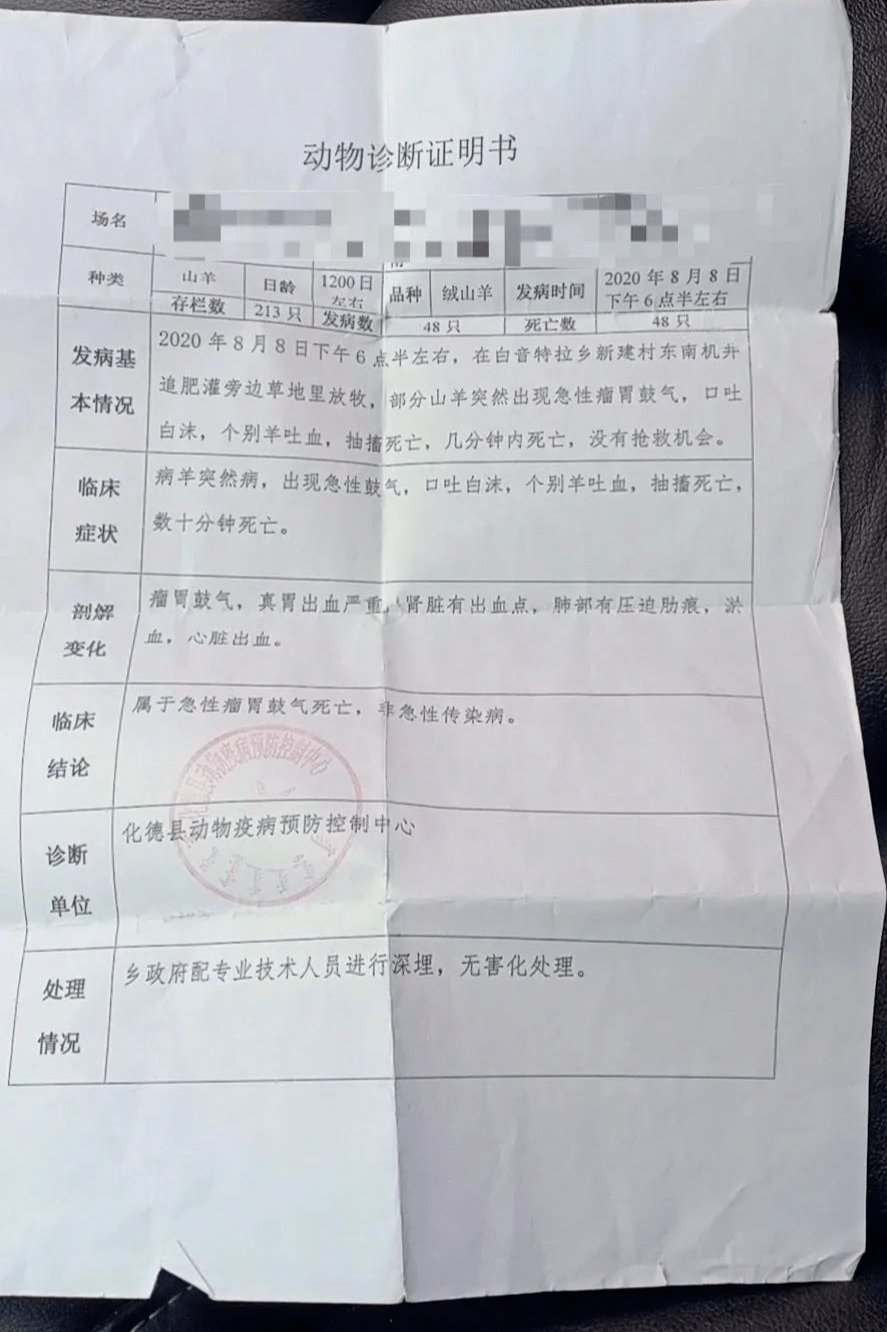 动物诊断证明书
场名
种类 山羊 日龄 1200日左右 品种 绒山羊 发病时间 2020年8月8日
下午6点半左右
存栏数 213只 发病数 48只 死亡数 48只
发病基本情况
2020年8月8日下午6点半左右，在白音特拉乡新建村东南机井
追肥灌旁边草地里放牧，部分山羊突然出现急性瘤胃鼓气，口吐
白沫，个别羊吐血，抽搐死亡，几分钟内死亡，没有抢救机会。
临床症状
病羊突然病，出现急性鼓气，口吐白沫，个别羊吐血，抽搐死亡，
数十分钟死亡。
剖解变化
瘤胃鼓气，真胃出血严重，肾脏有出血点，肺部有压迫肋痕，淤
血，心脏出血。
临床结论
属于急性瘤胃鼓气死亡，非急性传染病。
动物疫病预防控制中心
诊断单位
化德县动物疫病预防控制中心
处理情况
乡政府配专业技术人员进行深埋，无害化处理。